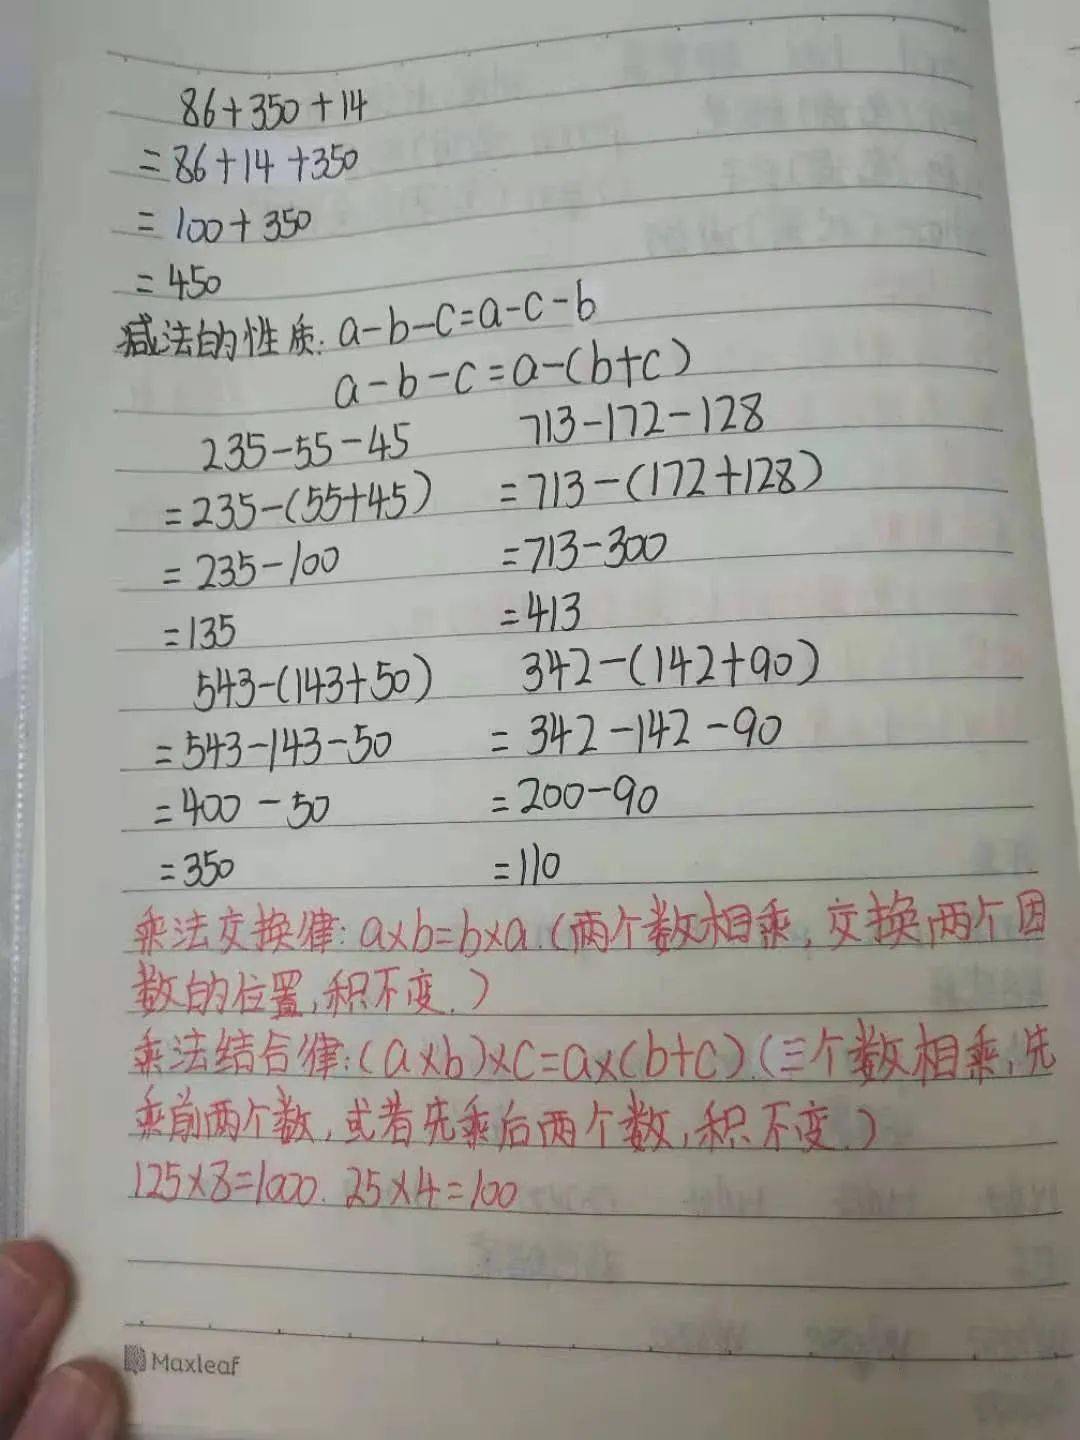 86+350+14
=86+14+350
=100+350
=450
减法的性质:a-b-c=a-c-b
a-b-c=a-(b+c)
235-55-45 713-172-128
=235-(55+45) =713-(172+128)
=235-100 =713-300
=135 =413
543-(143+50) 342-(142+90)
=543-143-50 =342-142-90
=400-50 =200-90
=350 =110
乘法交换律:a×b=b×a.(两个数相乘,交换两个因
数的位置,积不变.)
乘法结合律:(a×b)×c=a×(b+c).(三个数相乘,先
乘前两个数,或者先乘后两个数,积不变.)
125×8=1000. 25×4=100
Maxleaf